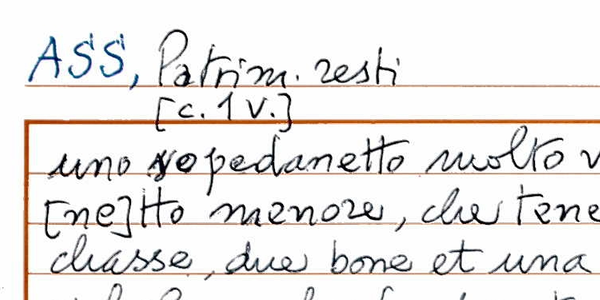 ASS, Patrim. resti
[c. 1 v.]
uno sopedanetto molto v
[ne]tto menore, che tene
chasse, due bone et una